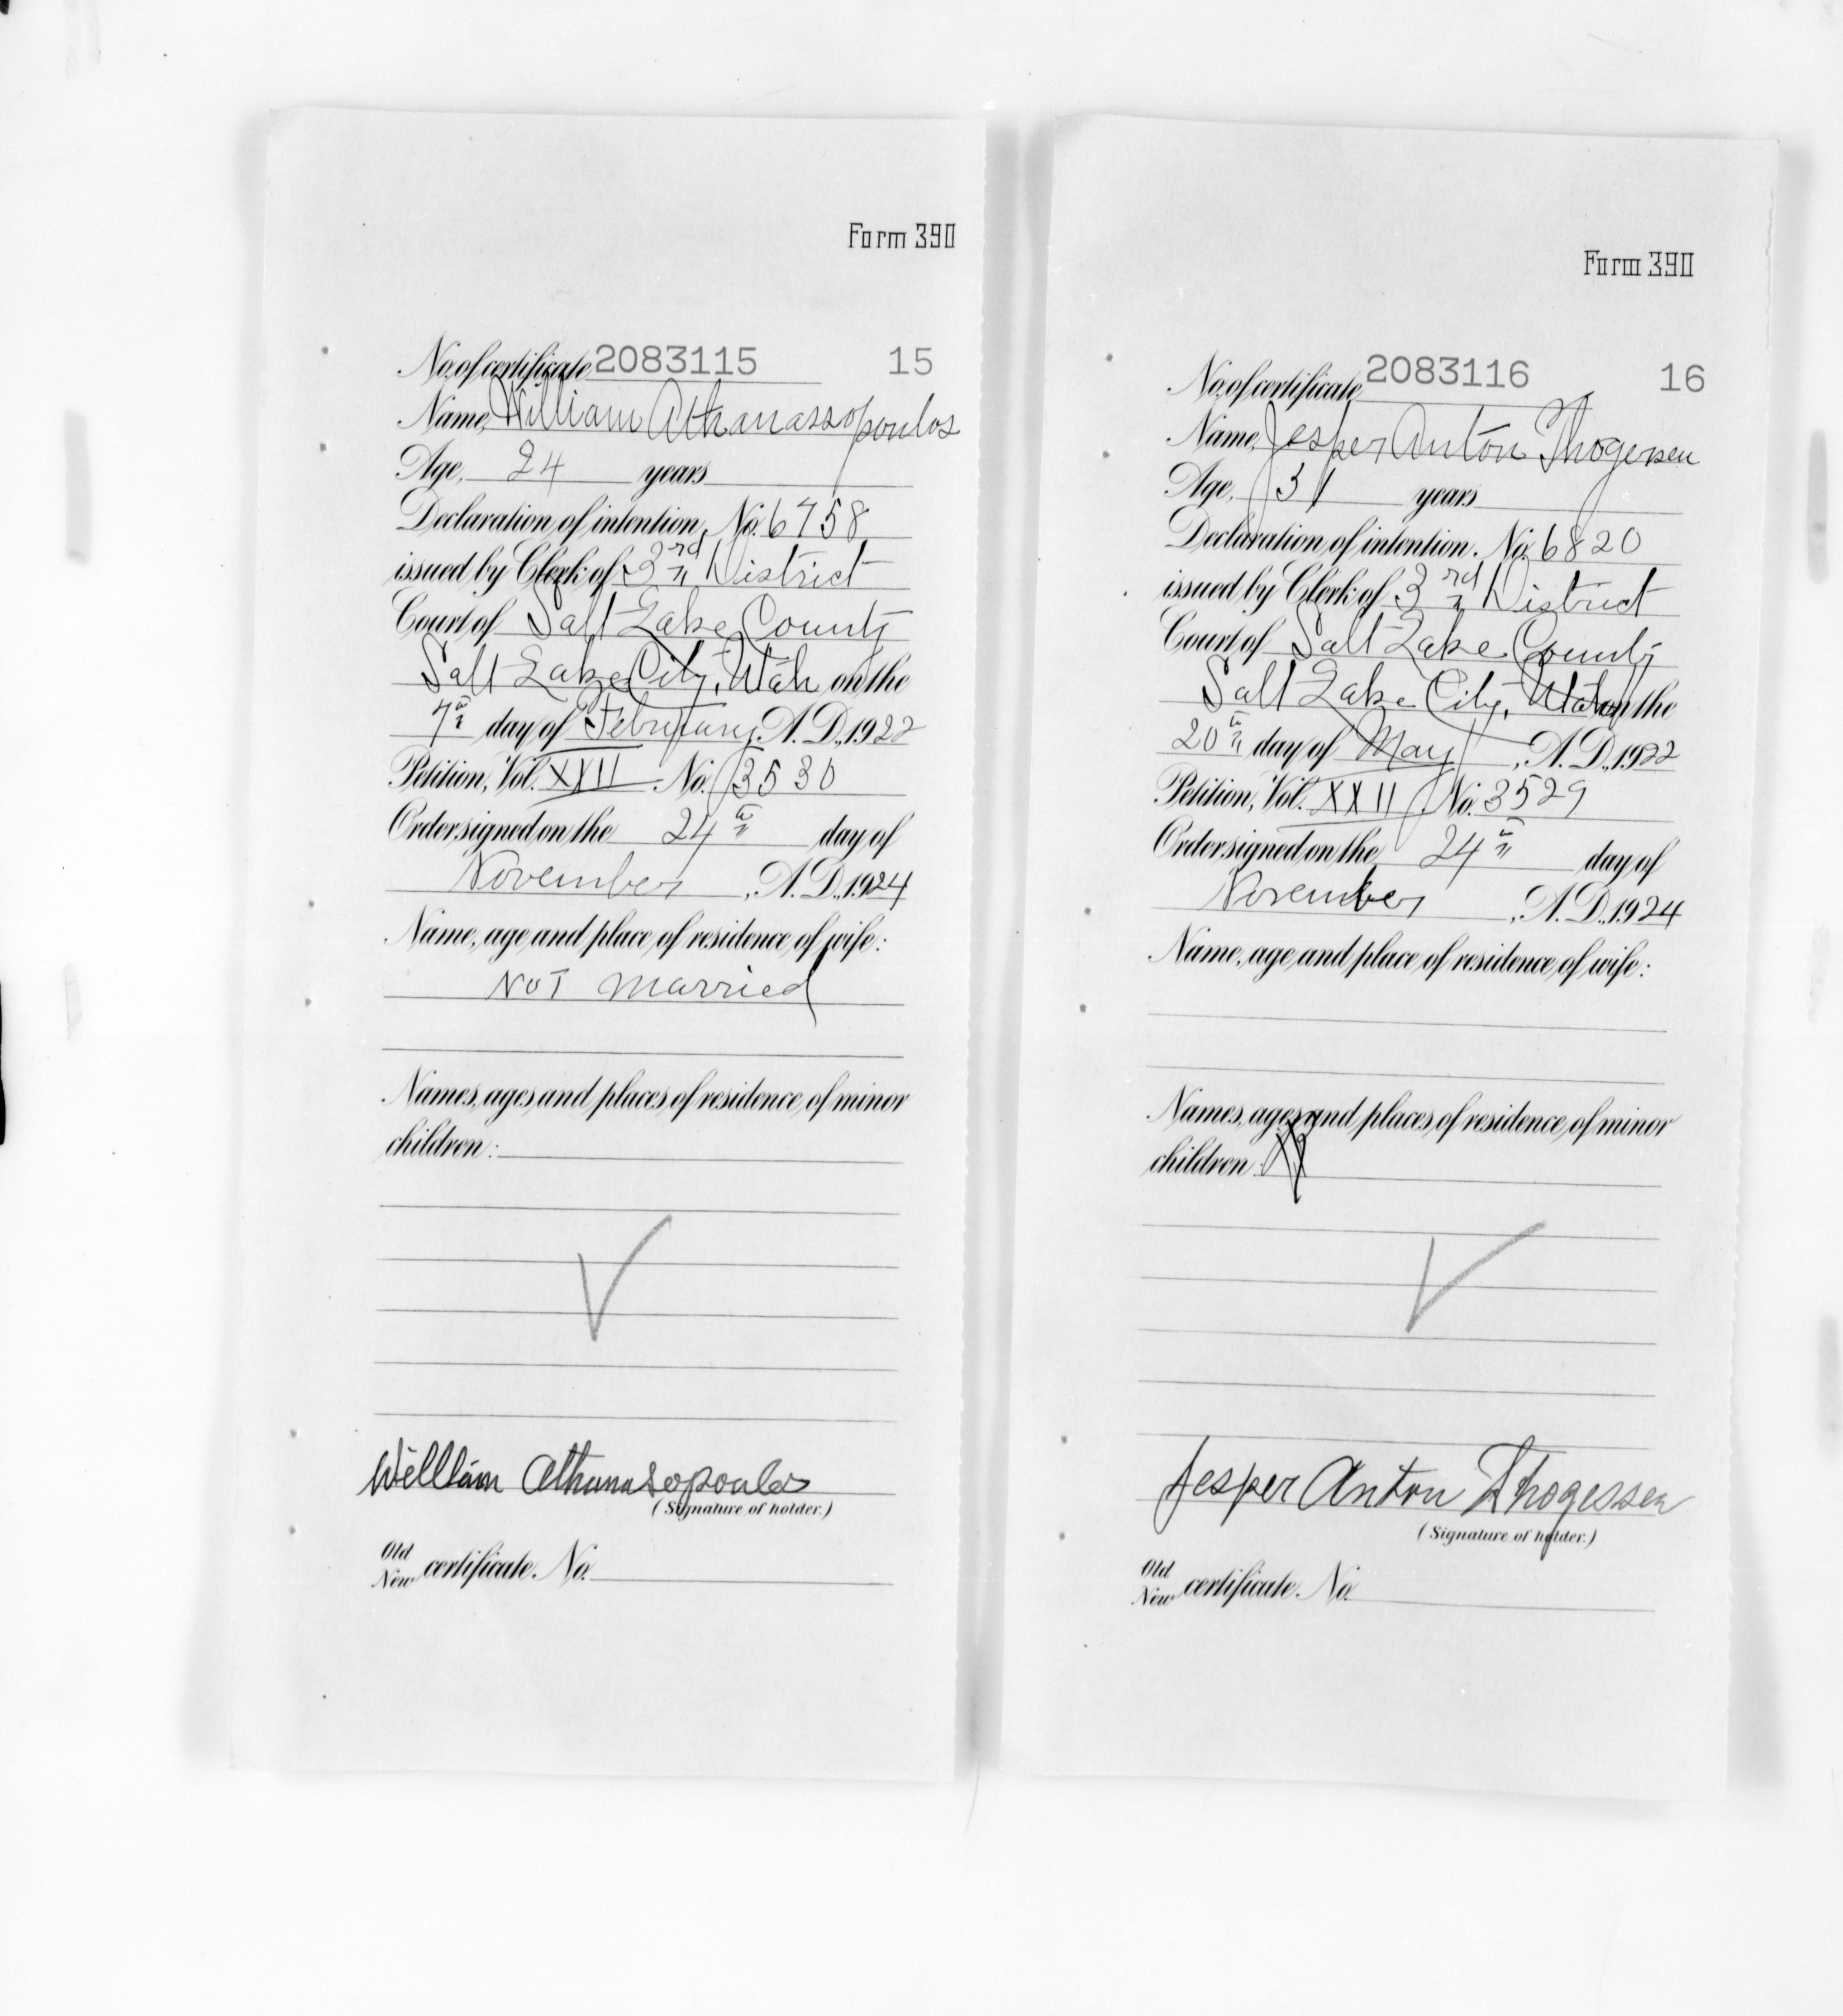 Form 390
No. of certificate 2083115 15
Name, William Athanassopoulos
Age, 24 years
Declaration of intention, No. 6758
issued by Clerk of 3rd District
Court of Salt Lake County
Salt Lake City, Utah on the
7th day of February, A.D., 1922
Petition, Vol. XXII No. 3530
Order signed on the 24th day of
November, A.D., 1924
Name, age and place of residence of wife:
Not Married
Names, ages and places of residence of minor
children:
William Athanasopoulos
(Signature of holder.)
Old
New certificate. No.
Form 390
No. of certificate 2083116 16
Name, Jesper Anton Thogersen
Age, 31 years
Declaration of intention. No. 6820
issued by Clerk of 3rd District
Court of Salt Lake County
Salt Lake City, Utah on the
20th day of May, A.D., 1922
Petition, Vol. XXII No. 3529
Order signed on the 24th day of
November, A.D., 1924
Name, age and place of residence of wife:
Names, ages and places of residence of minor
children:
Jesper Anton Thogersen
(Signature of holder.)
Old
New certificate. No.